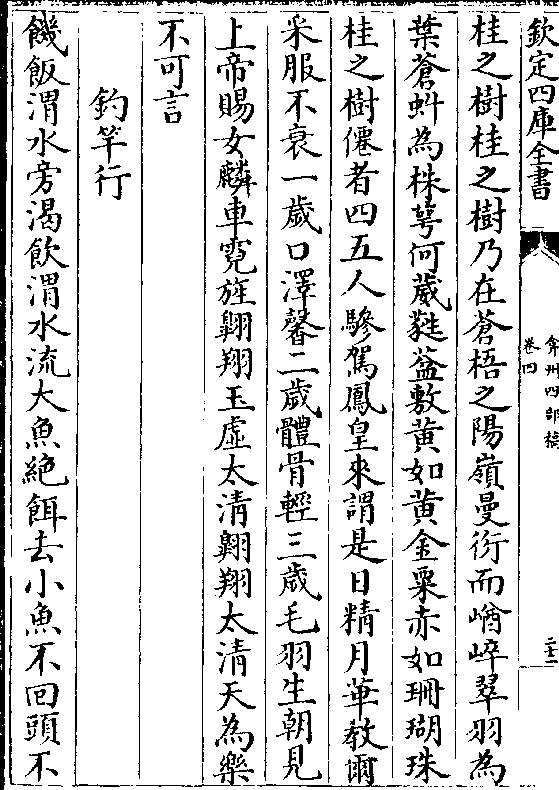 欽定四庫全書
弇州四部稿
卷四
三十二
桂之樹桂之樹乃在蒼梧之陽嶺曼衍而崷崒翠羽為
葉蒼虯為株萼何葳蕤益敷黄如黄金粟赤如珊瑚珠
桂之樹僊者四五人驂駕鳳皇來謂是日精月華教爾
采服不衰一歲口澤馨二歲體骨輕三歲毛羽生朝見
上帝賜女麟車霓旌翺翔玉虛太清翺翔太清天為樂
不可言
釣竿行
饑飯渭水旁渴飲渭水流大魚絶餌去小魚不回頭不